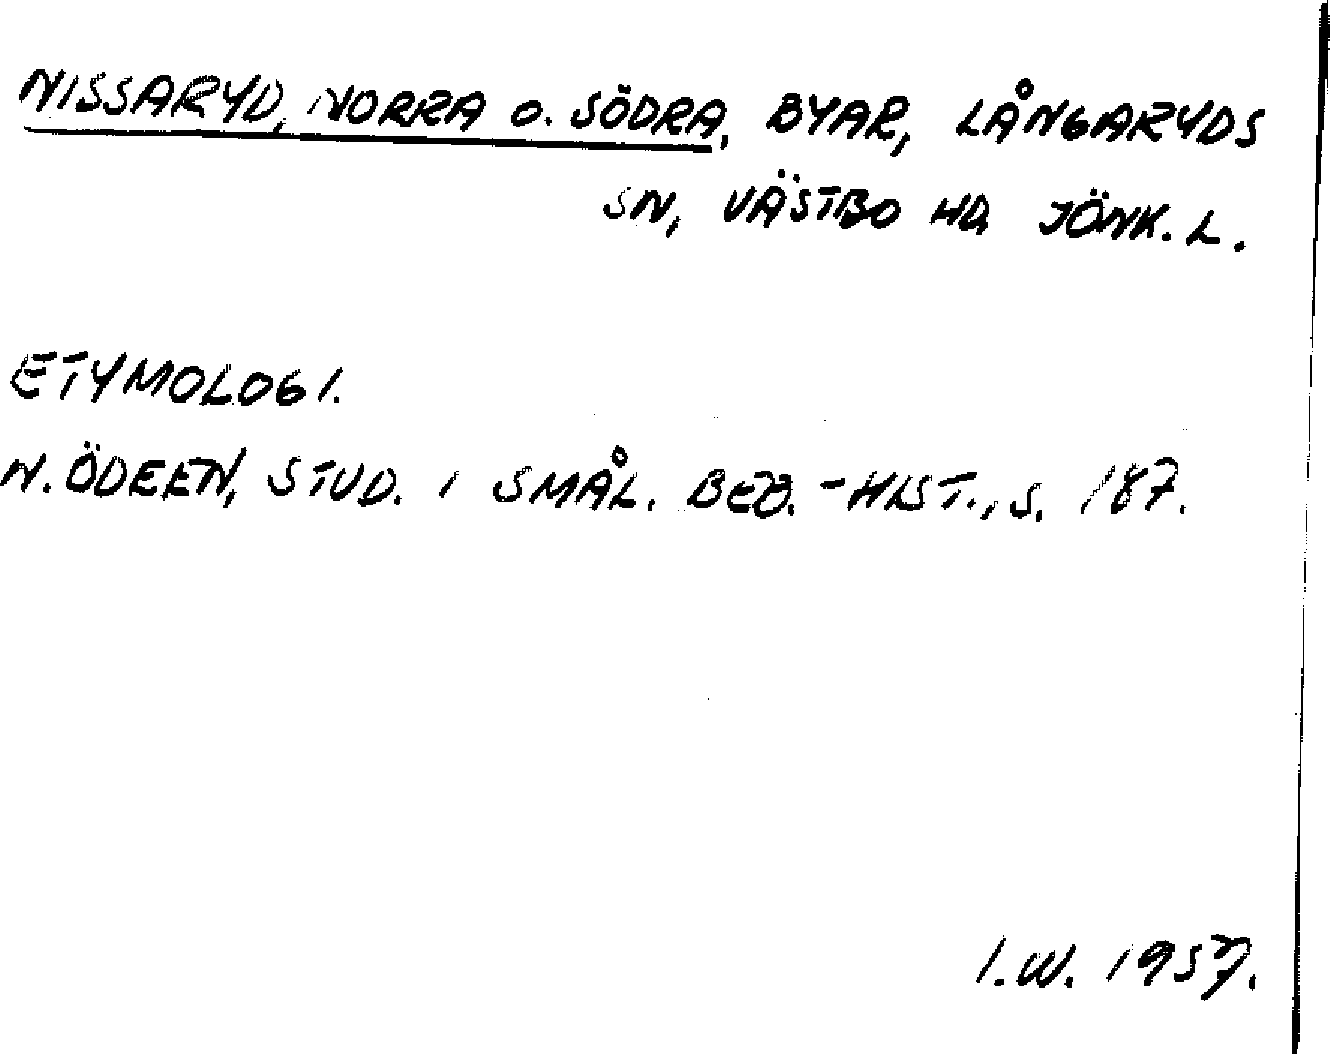 NISSARYD, NORRA O. SÖDRA, BYAR, LÅNGARYDS
SN, VÄSTBO HD, JÖNK. L.
ETYMOLOGI.
N. ÖDEEN, STUD. I SMÅL. BEB.-HIST., S. 187.
I.W. 1957.